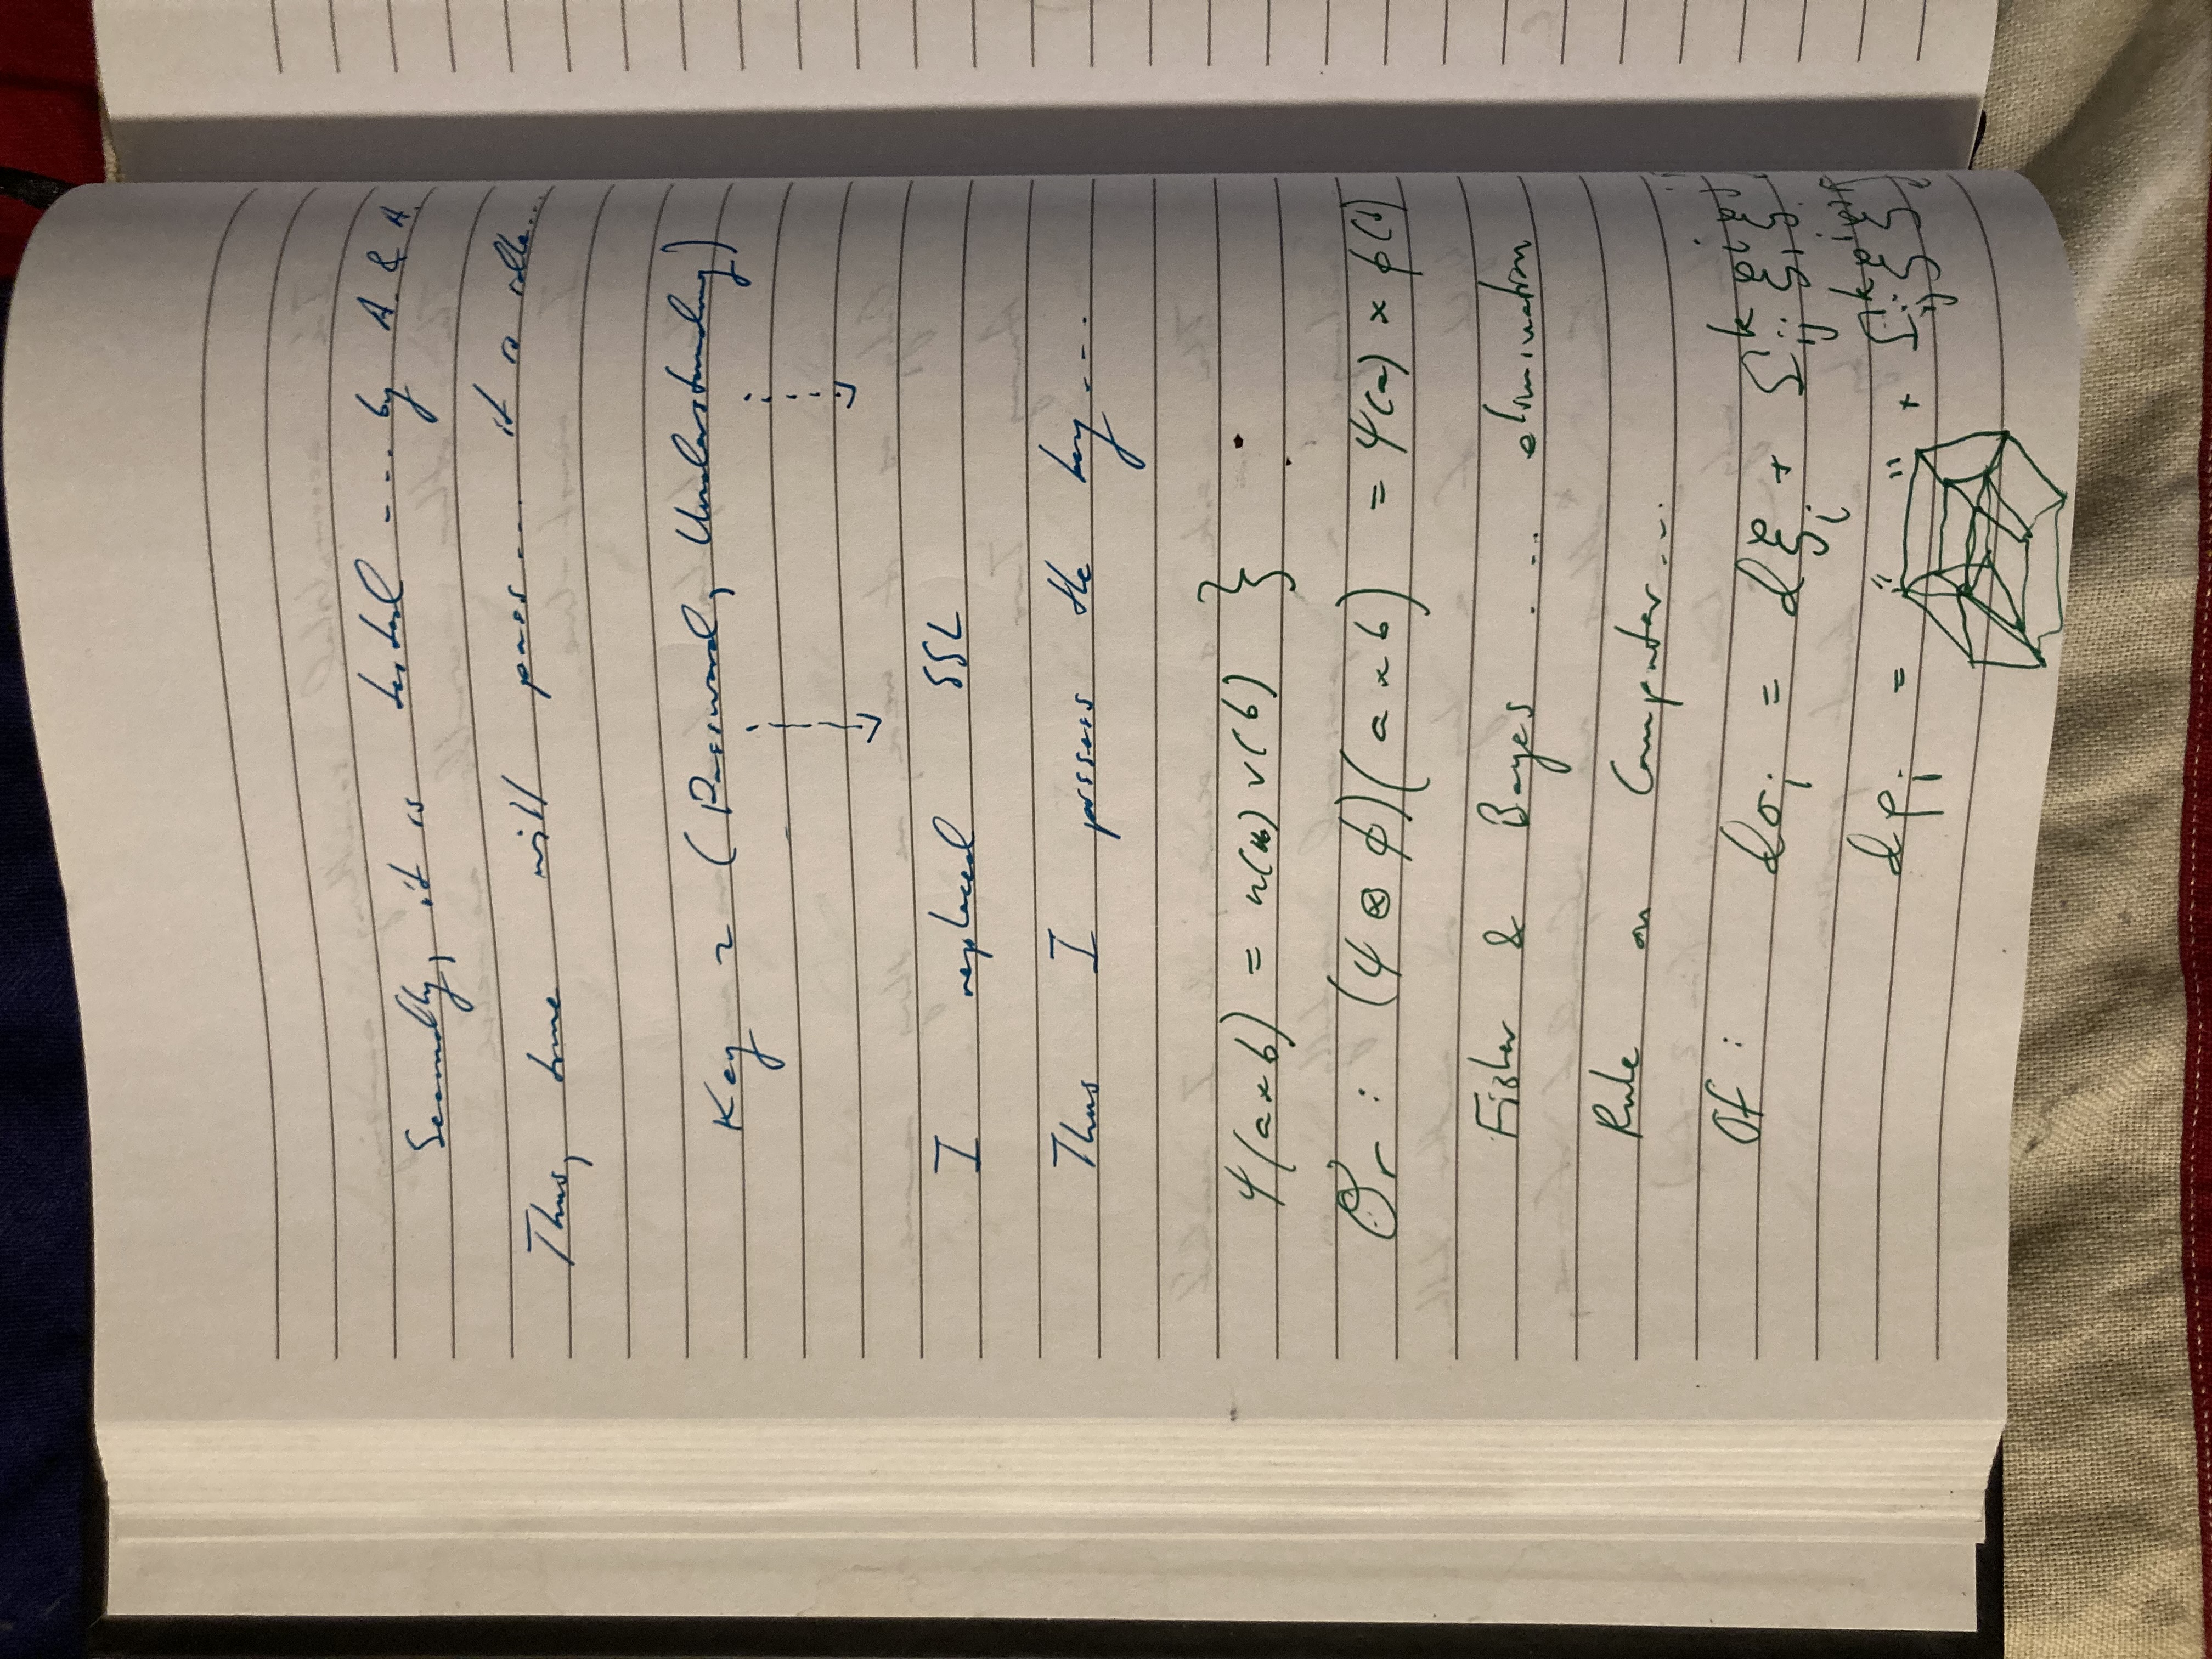 Secondly, it is tested --- by A & A.
Thus, time will pass ---- it is
Key ~ (Password, Understanding)
I replaced SSL
Thus I possess the key ---
ψ(a×b) = u(a) v(b) }
Or : (ψ ⊗ φ)(a×b) = ψ(a) × φ(b)
Fisher & Bayes .... elimination
Rule on Computer ...
Of : dσᵢ = dξⱼ +
dρᵢ = " " +